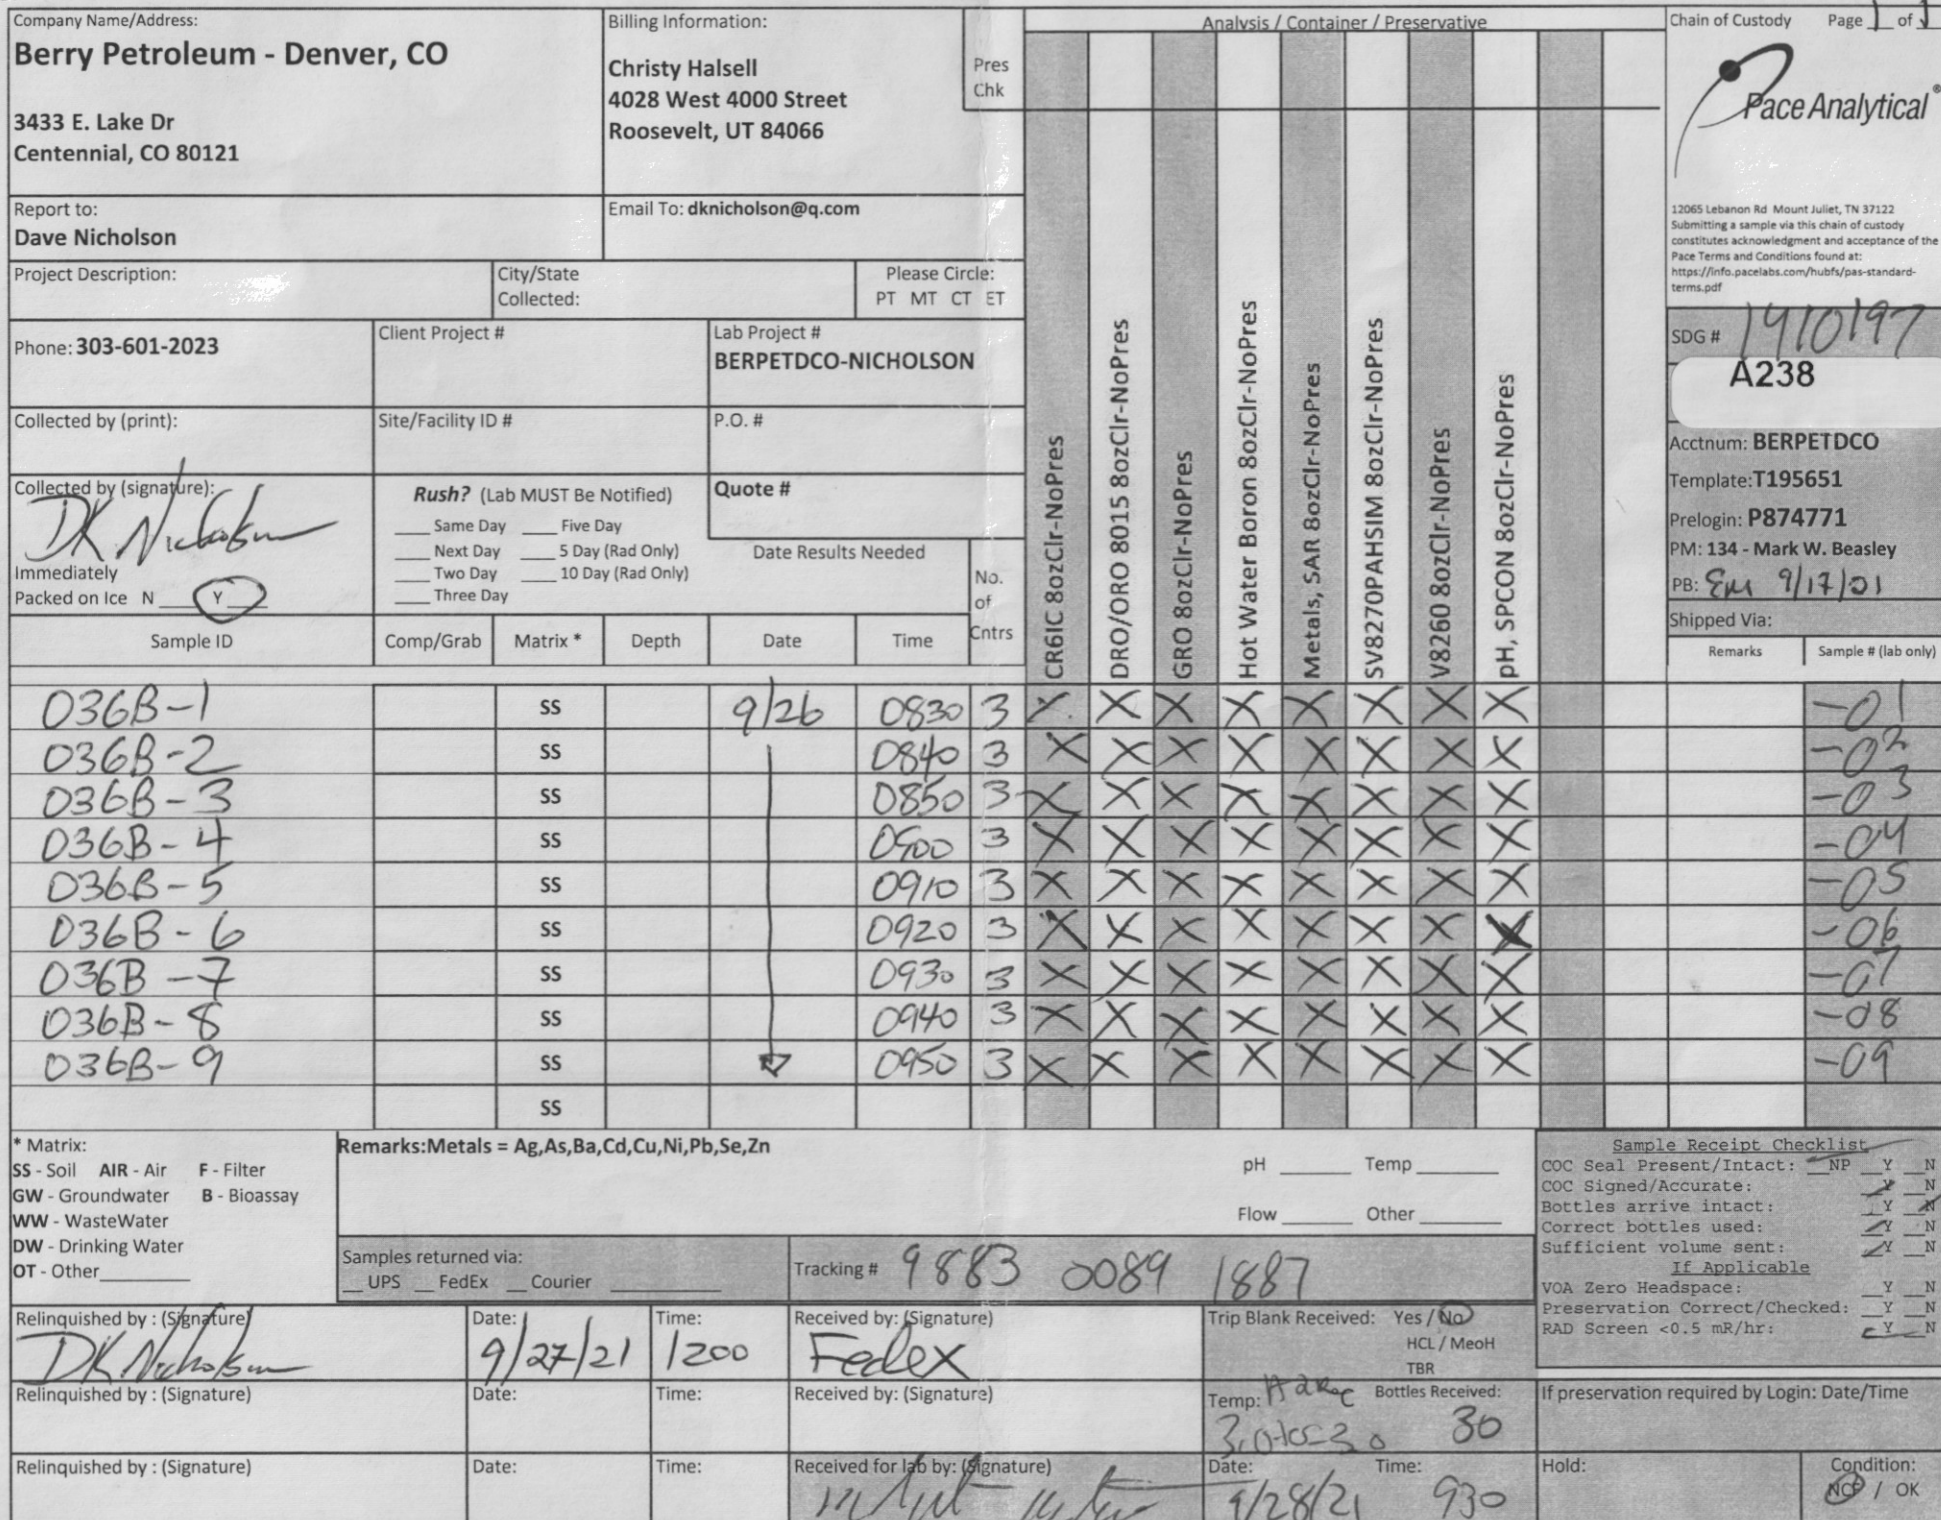 Company Name/Address:
Berry Petroleum - Denver, CO
3433 E. Lake Dr
Centennial, CO 80121
Billing Information:
Christy Halsell
4028 West 4000 Street
Roosevelt, UT 84066
Pres
Chk
Analysis / Container / Preservative
Chain of Custody Page 1 of 1
Pace Analytical®
12065 Lebanon Rd Mount Juliet, TN 37122
Submitting a sample via this chain of custody
constitutes acknowledgment and acceptance of the
Pace Terms and Conditions found at:
https://info.pacelabs.com/hubfs/pas-standard-
terms.pdf
Report to:
Dave Nicholson
Email To: dknicholson@q.com
Project Description:
City/State
Collected:
Please Circle:
PT MT CT ET
Phone: 303-601-2023
Client Project #
Lab Project #
BERPETDCO-NICHOLSON
Collected by (print):
Site/Facility ID #
P.O. #
Collected by (signature):
DK Nicholson
Rush? (Lab MUST Be Notified)
___ Same Day ___ Five Day
___ Next Day ___ 5 Day (Rad Only)
___ Two Day ___ 10 Day (Rad Only)
___ Three Day
Quote #
Date Results Needed
Immediately
Packed on Ice N ___ Y ___
No.
of
Cntrs
CR6IC 8ozClr-NoPres
DRO/ORO 8015 8ozClr-NoPres
GRO 8ozClr-NoPres
Hot Water Boron 8ozClr-NoPres
Metals, SAR 8ozClr-NoPres
SV8270PAHSIM 8ozClr-NoPres
V8260 8ozClr-NoPres
pH, SPCON 8ozClr-NoPres
SDG # 1410197
A238
Acctnum: BERPETDCO
Template:T195651
Prelogin: P874771
PM: 134 - Mark W. Beasley
PB: Em 9/17/21
Shipped Via:
Sample ID Comp/Grab Matrix * Depth Date Time Remarks Sample # (lab only)
036B-1 SS 9/26 0830 3 X X X X X X X X -01
036B-2 SS 0840 3 X X X X X X X X -02
036B-3 SS 0850 3 X X X X X X X X -03
036B-4 SS 0900 3 X X X X X X X X -04
036B-5 SS 0910 3 X X X X X X X X -05
036B-6 SS 0920 3 X X X X X X X X -06
036B-7 SS 0930 3 X X X X X X X X -07
036B-8 SS 0940 3 X X X X X X X X -08
036B-9 SS 0950 3 X X X X X X X X -09
SS
* Matrix:
SS - Soil AIR - Air F - Filter
GW - Groundwater B - Bioassay
WW - WasteWater
DW - Drinking Water
OT - Other
Remarks:Metals = Ag,As,Ba,Cd,Cu,Ni,Pb,Se,Zn
pH ___ Temp ___
Flow ___ Other ___
Samples returned via:
__ UPS __ FedEx __ Courier
Tracking # 9883 0089 1887
Sample Receipt Checklist
COC Seal Present/Intact: __NP __Y __N
COC Signed/Accurate: __Y __N
Bottles arrive intact: __Y __N
Correct bottles used: __Y __N
Sufficient volume sent: __Y __N
If Applicable
VOA Zero Headspace: __Y __N
Preservation Correct/Checked: __Y __N
RAD Screen <0.5 mR/hr: __Y __N
Relinquished by : (Signature)
DK Nicholson
Date:
9/27/21
Time:
1200
Received by: (Signature)
Fedex
Trip Blank Received: Yes / No
HCL / MeoH
TBR
Relinquished by : (Signature)
Date:
Time:
Received by: (Signature)
Temp:
Bottles Received:
30
If preservation required by Login: Date/Time
Relinquished by : (Signature)
Date:
Time:
Received for lab by: (Signature)
Date:
9/28/21
Time:
930
Hold:
Condition:
NCF / OK